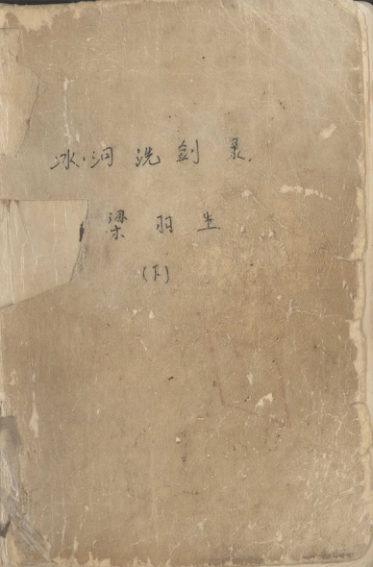 冰河洗剑录
梁羽生
(下)